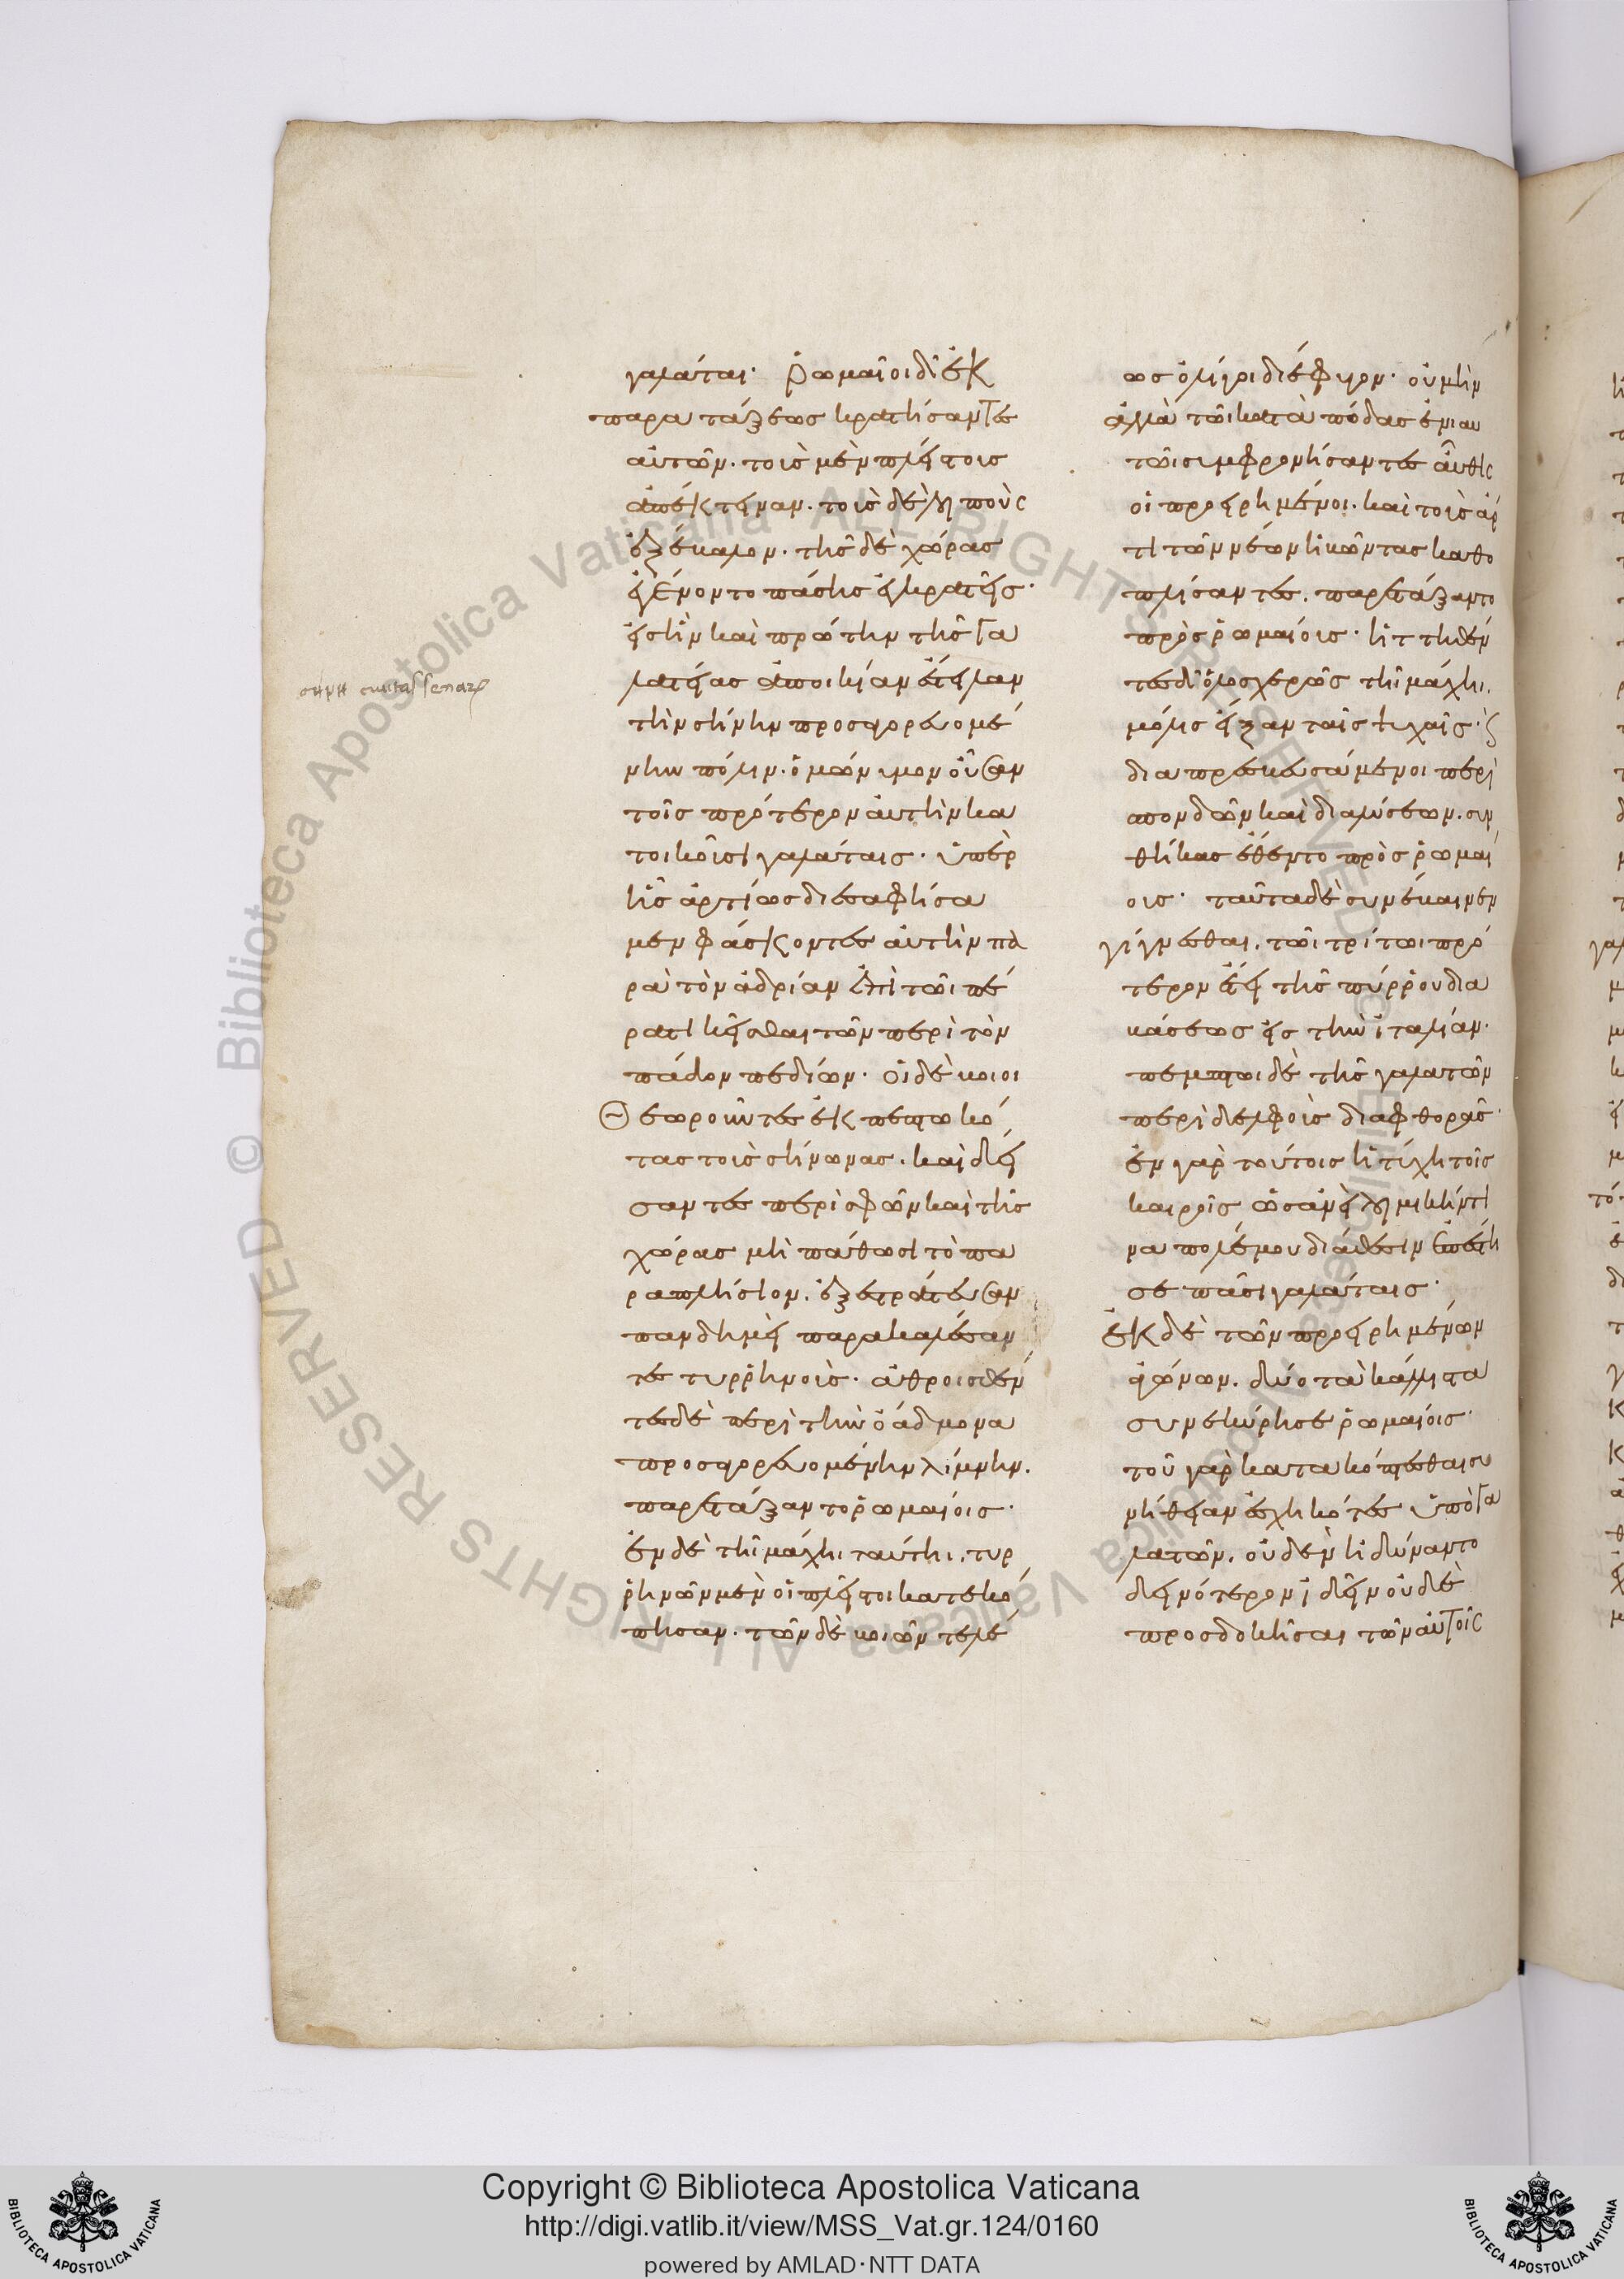 γαλάται· ῥωμαῖοι δ' ἐκ
παρατάξεως κρατήσαντες
αὐτῶν· τοὺς μὲν πλείστους
ἀπέκτειναν· τοὺς δὲ λοιποὺς
ἐξέβαλον· τῆς δὲ χώρας
ἐγένοντο πάσης ἐγκρατεῖς·
εἰς ἣν καὶ πρώτην τῆς γα
λατείας ἀποικίαν ἔστειλαν
τὴν σήνην προσαγορευομέ
νην πόλιν· ὁμώνυμον οὖσαν
τοῖς πρότερον αὐτὴν κα
τοικοῦσι γαλάταις· ὑπὲρ
ἧς ἀρτίως διεσαφήσα
μεν φάσκοντες αὐτὴν πα
ρὰ τὸν ἀδρίαν ἐπὶ τῶι πέ
ρατι κεῖσθαι τῶν περὶ τὸν
πάδον πεδίων· οἱ δὲ βοιοι
θεωροῦντες ἐκπεπτωκό
τας τοὺς σήνωνας· καὶ δεί
σαντες περὶ σφῶν καὶ τῆς
χώρας μὴ πάθωσι τὸ πα
ραπλήσιον· ἐξεστράτευσαν
πανδημεὶ παρακαλέσαν
τες τυρρηνούς· ἀθροισθέν
τες δὲ περὶ τὴν ὀάδμονα
προσαγορευομένην λίμνην·
παρετάξαντο ῥωμαίοις·
ἐν δὲ τῆι μάχηι ταύτηι· τυρ
ρηνῶν μὲν οἱ πλεῖστοι κατεκό
πησαν· τῶν δὲ βοιῶν τελέ
ως ὀλίγοι διέφυγον· οὐ μὴν
ἀλλὰ τῶι κατὰ πόδας ἐνιαυ
τῶι συμφρονήσαντες αὖθις
οἱ προειρημένοι· καὶ τοὺς ἄρ
τι τῶν νέων ἡβῶντας καθο
πλίσαντες· παρετάξαντο
πρὸς ῥωμαίους· ἡττηθέν
τες δ' ὁλοσχερῶς τῆι μάχηι·
μόλις εἶξαν ταῖς ψυχαῖς· καὶ
διαπρεσβευσάμενοι περὶ
σπονδῶν καὶ διαλύσεων· συν
θήκας ἔθεντο πρὸς ῥωμαί
ους· ταῦτα δὲ συνέβαινεν
γίγνεσθαι· τῶι τρίτωι πρό
τερον ἔτει τῆς πύρρου δια
βάσεως εἰς τὴν ἰταλίαν·
πέμπτωι δὲ τῆς γαλατῶν
περὶ δελφοὺς διαφθορᾶς·
ἐν γὰρ τούτοις ἡ τύχη τοῖς
καιροῖς ὡσανεὶ λοιμικήν τι
να πολέμου διάθεσιν ἐπέστη
σε πᾶσι γαλάταις·
ἐκ δὲ τῶν προειρημένων
ἀγώνων· δύο τὰ κάλλιστα
συνεκύρησε ῥωμαίοις·
τοῦ γὰρ κατακόπτεσθαι συ
νήθειαν ἐσχηκότες ὑπὸ γα
λατῶν· οὐδὲν ἠδύναντο
δεινότερον ἰδεῖν οὐδὲ
προσδοκῆσαι τῶν αὐτοῖς
σηνη ciuitas senar
Copyright © Biblioteca Apostolica Vaticana
http://digi.vatlib.it/view/MSS_Vat.gr.124/0160
powered by AMLAD·NTT DATA
BIBLIOTECA APOSTOLICA VATICANA
BIBLIOTECA APOSTOLICA VATICANA
© Biblioteca Apostolica Vaticana ALL RIGHTS RESERVED
© Biblioteca Apostolica Vaticana ALL RIGHTS RESERVED